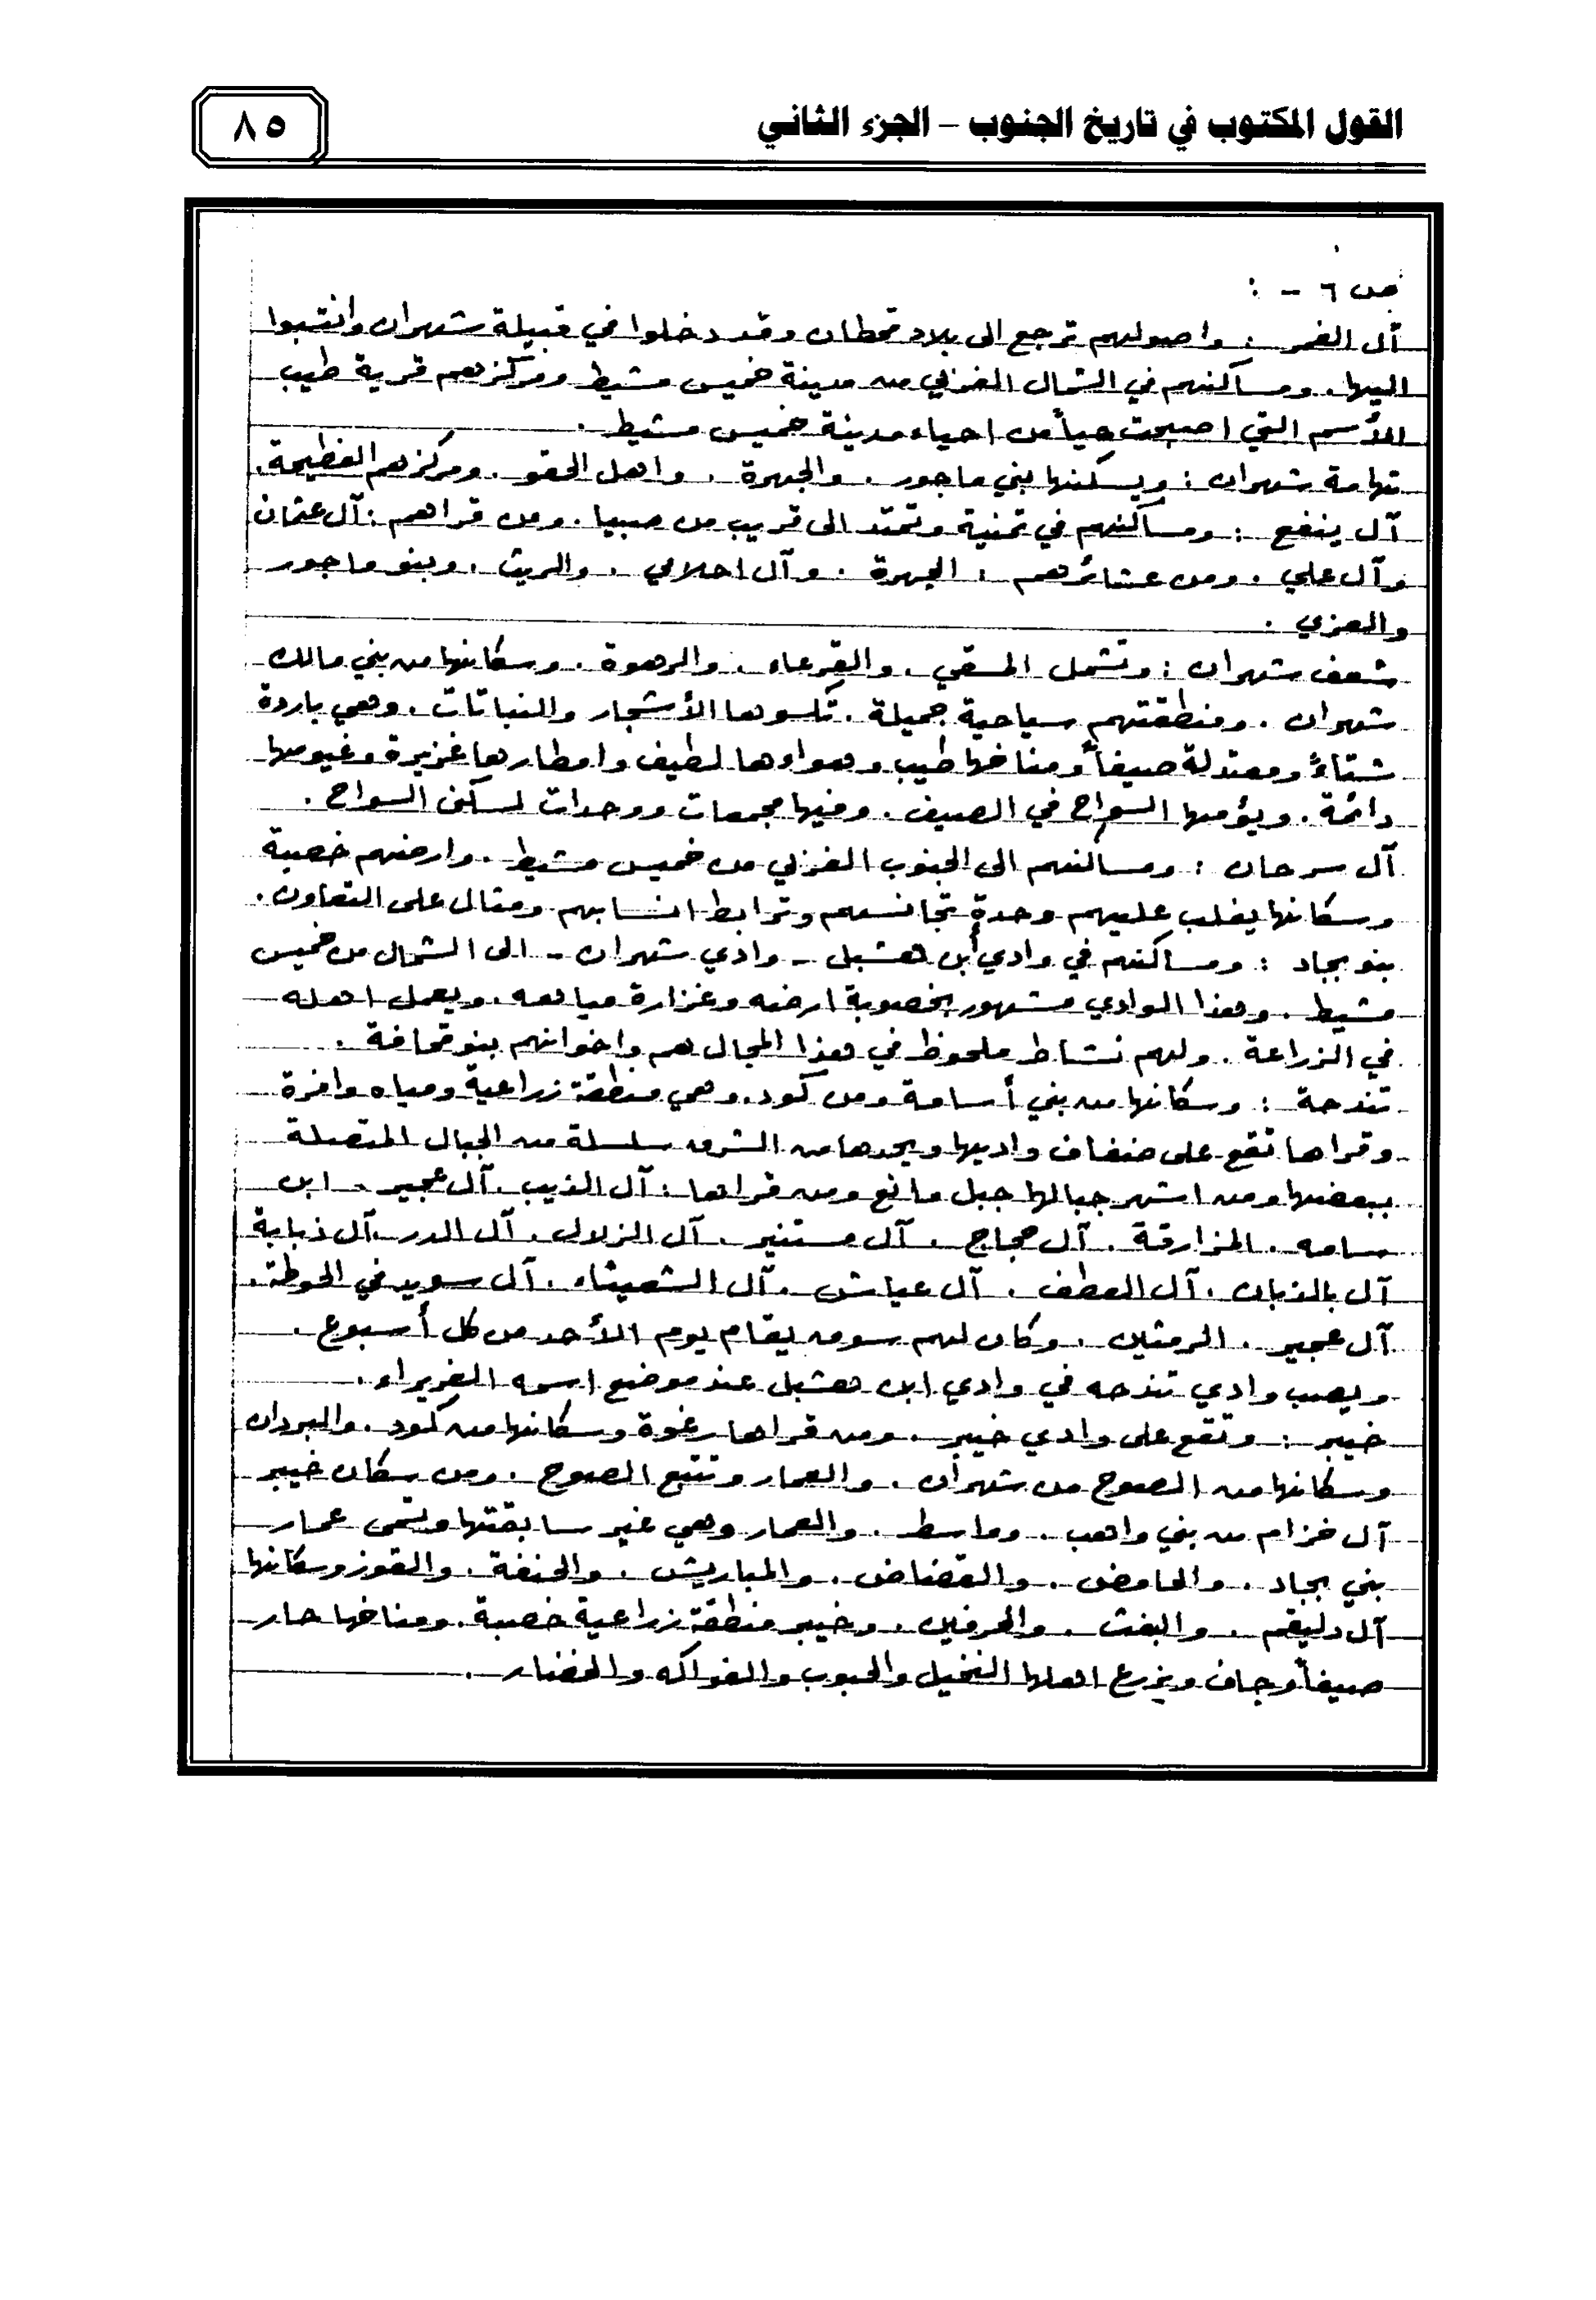 القول المكتوب في تاريخ الجنوب – الجزء الثاني
٨٥
ص ٦ - :
آل الغمر : واصولهم ترجع الى بلاد قحطان وقد دخلوا في قبيلة شهران وانتسبوا
اليها . ومساكنهم في الشمال الغربي من مدينة خميس مشيط ومركزهم قرية طيب
الأسم التي اصبحت حياً من احياء مدينة خميس مشيط .
تهامة شهران : ويسكنها بني ماجور . والجهرة . واهل الحقو . ومركزهم الفطيحة .
آل ينفع : ومساكنهم في تمنية وتمتد الى قريب من صبيا . ومن قراهم : آل عثمان
وآل علي . ومن عشائرهم . الجهرة . وآل احلامي . والريث . وبنو ماجور
والعزي .
شعف شهران : وتشمل المسقي . والقرعاء . والرهوة . وسكانها من بني مالك
شهران . ومنطقتهم سياحية جميلة . تكسوها الأشجار والنباتات . وهي باردة
شتاءً ومعتدلة صيفاً ومناخها طيب وهواءها لطيف وامطارها غزيرة وغيومها
دائمة . ويؤمها السواح في الصيف . وفيها مجمعات ووحدات لسكن السواح .
آل سرحان : ومساكنهم الى الجنوب الغربي من خميس مشيط . وارضهم خصبة
وسكانها يغلب عليهم وحدة تجانسهم وترابط انسابهم ومثال على التعاون .
بنو بجاد : ومساكنهم في وادي أبن هشبل - وادي شهران - الى الشمال من خميس
مشيط . وهذا الوادي مشهور بخصوبة ارضه وغزارة مياهه . ويعمل اهله
في الزراعة . ولهم نشاط ملحوظ في هذا المجال هم واخوانهم بنو قحافة .
تندحة : وسكانها من بني أسامة ومن كود . وهي منطقة زراعية ومياه وافرة
وقراها تقع على ضفاف واديها ويحدها من الشرق سلسلة من الجبال المتصلة
ببعضها ومن اشهر جبالها جبل مانع ومن قراها : آل الذيب . آل عجير . ابن
سامه . المزارقة . آل حجاج . آل مستنير . آل الزلال . آل الدر . آل ذبابة
آل بالذبان . آل العطف . آل عياش . آل الشعيثاء . آل سويد في الحوطة .
آل عجير . الرمثين . وكان لهم سوق يقام يوم الأحد من كل أسبوع .
ويصب وادي تندحه في وادي ابن هشبل عند موضع اسمه الغريراء .
خيبر : وتقع على وادي خيبر . ومن قراها رغوة وسكانها من كود . والبردان
وسكانها من الصوح من شهران . والعمار وتتبع الصوح . ومن سكان خيبر
آل خزام من بني واهب . وماسط . والعمار وهي غير سابقتها وتسمى عمار
بني بجاد . والحامض . والقضاض . والمباريش . والحنفة . والقوز وسكانها
آل دليقم . والبغث . والحرفين . وخيبر منطقة زراعية خصبة . ومناخها حار
صيفاً وجاف ويزرع اهلها النخيل والحبوب والفواكه والخضار .